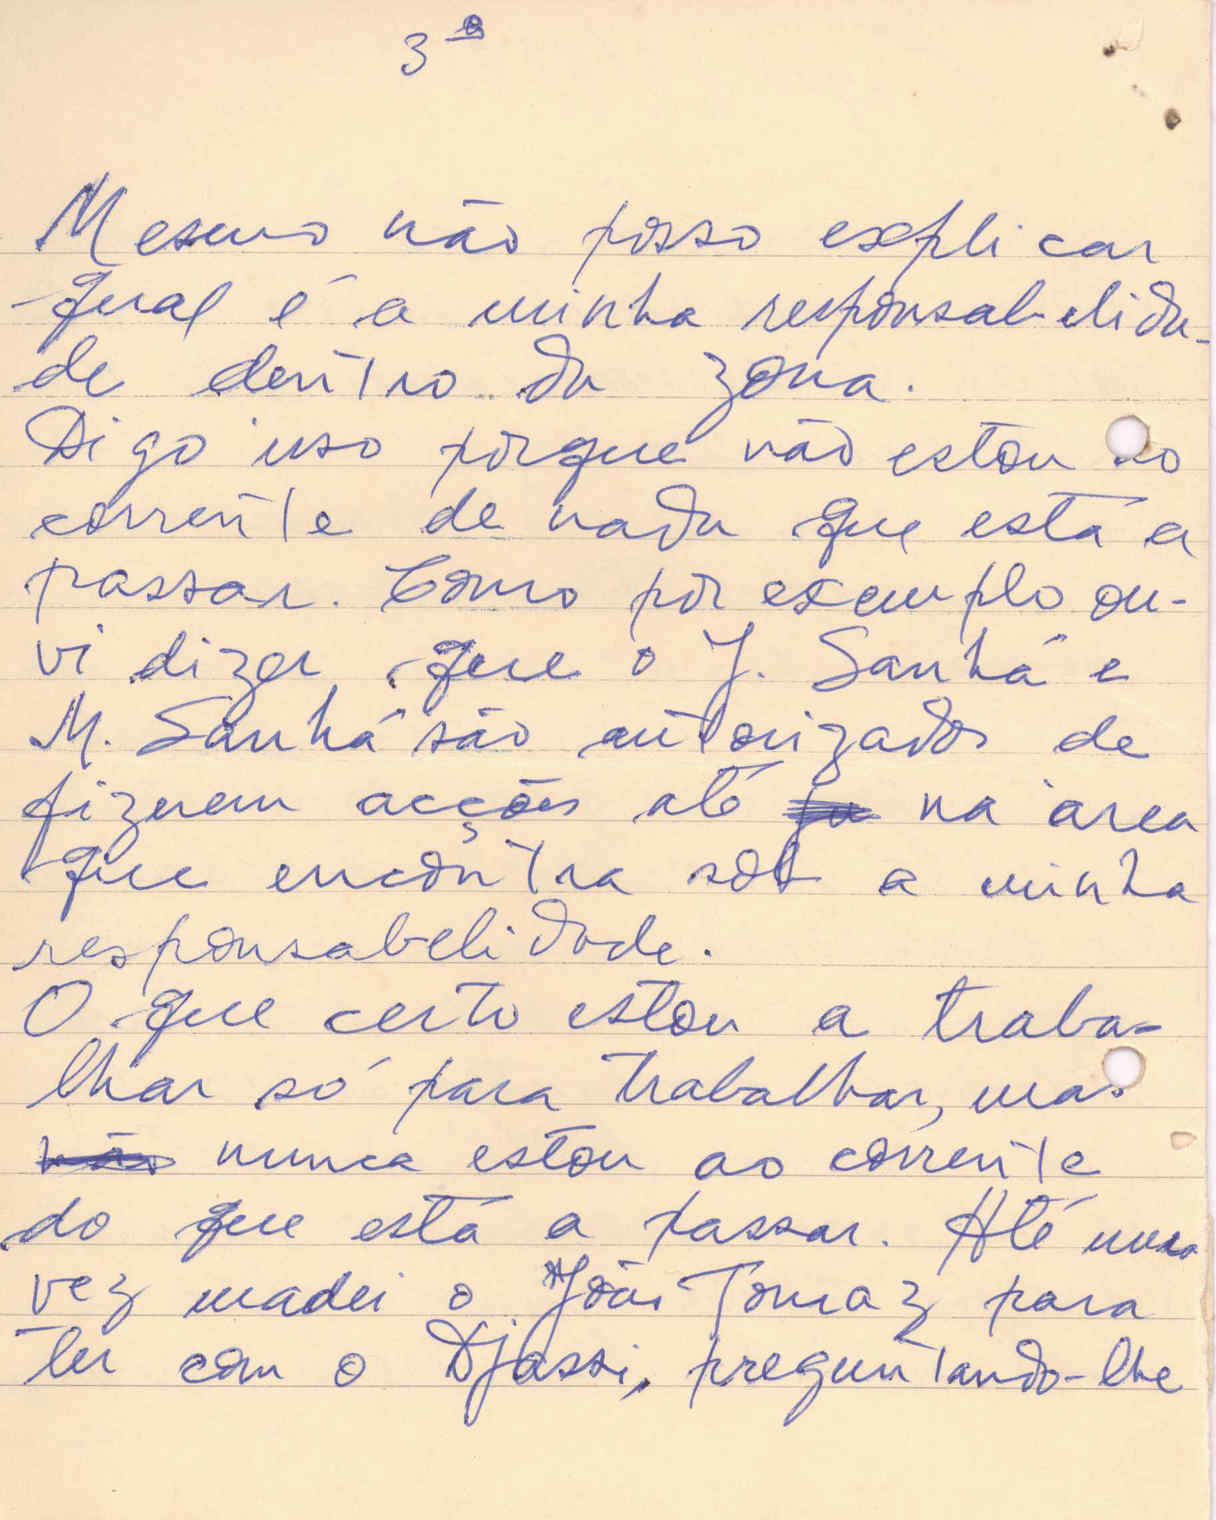 3º
Mesmo não posso explicar
qual é a minha responsabelida-
de dentro da zona.
Digo isso porque não estou ao
corrente de nada que está a
passar. Como por exemplo ou-
vi dizer que o J. Sanhá e
M. Sanhá são autorizados de
fizerem acções até na area
que encontra sob a minha
responsabelidade.
O que certo estou a traba-
lhar só para trabalhar, mas
não nunca estou ao corrente
do que está a passar. Até uma
vez madei o João Tomaz para
ter com o Djassi, preguntando-lhe